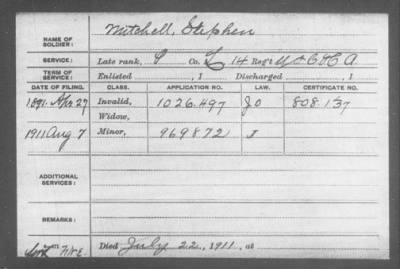 NAME OF SOLDIER: Mitchell, Stephen
SERVICE: Late rank, P Co. L 14 Reg't U.S.C.H.A.
TERM OF SERVICE: Enlisted , 1 Discharged , 1
DATE OF FILING. CLASS. APPLICATION NO. LAW. CERTIFICATE NO.
1891. Apr 27 Invalid, 1026.497 J O 808.137
Widow,
1911 Aug 7 Minor, 969872 I
ADDITIONAL SERVICES:
REMARKS:
Died July 22, 1911, at